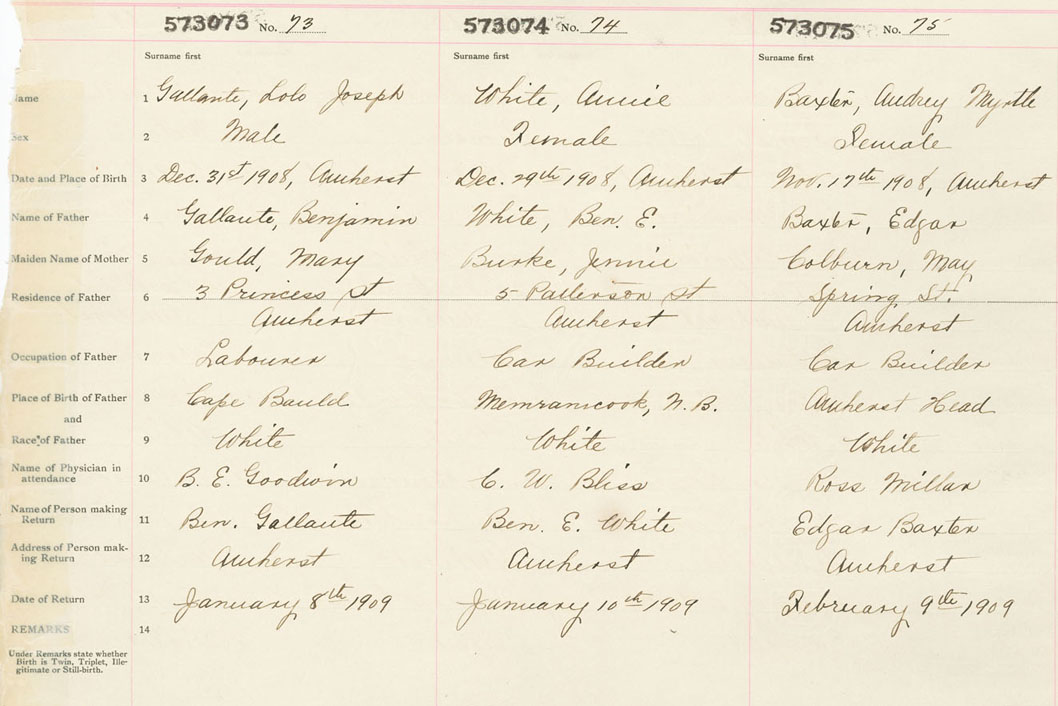 573073 No. 73 573074 No. 74 573075 No. 75
Surname first Surname first Surname first
Name 1 Gallante, Lolo Joseph White, Annie Baxter, Audrey Myrtle
Sex 2 Male Female Female
Date and Place of Birth 3 Dec. 31st 1908, Amherst Dec. 29th 1908, Amherst Nov. 17th 1908, Amherst
Name of Father 4 Gallante, Benjamin White, Ben. E. Baxter, Edgar
Maiden Name of Mother 5 Gould, Mary Burke, Jennie Colburn, May
Residence of Father 6 3 Princess St 5 Patterson St Spring St.
Amherst Amherst Amherst
Occupation of Father 7 Labourer Car Builder Car Builder
Place of Birth of Father 8 Cape Bauld Memramcook, N.B. Amherst Head
and
Race of Father 9 White White White
Name of Physician in
attendance 10 B. E. Goodwin C. W. Bliss Ross Millar
Name of Person making
Return 11 Ben. Gallante Ben. E. White Edgar Baxter
Address of Person mak-
ing Return 12 Amherst Amherst Amherst
Date of Return 13 January 8th 1909 January 10th 1909 February 9th 1909
REMARKS 14
Under Remarks state whether
Birth is Twin, Triplet, Ille-
gitimate or Still-birth.